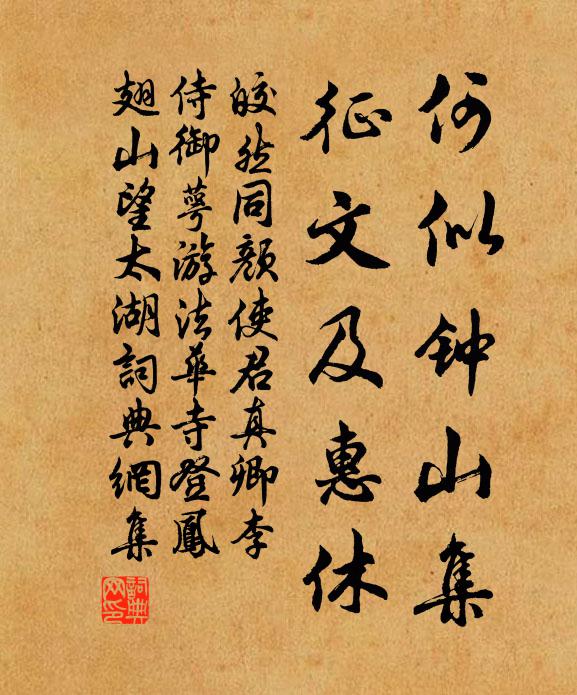 何似钟山集
征文及惠休
皎然同颜使君真卿李
侍御萼游法華寺登鳳
翅山望太湖詞典網集
詞典
网印